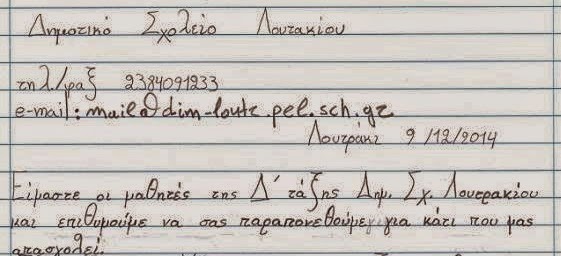 Δημοτικό Σχολείο Λουτακίου
τηλ./φαξ 2384091233
e-mail: mail@dim-loutr.pel.sch.gr
Λουτράκι 9 /12/2014
Είμαστε οι μαθητές της Δ΄ τάξης Δημ. Σχ. Λουτρακίου
και επιθυμούμε να σας παραπονεθούμε για κάτι που μας
απασχολεί.